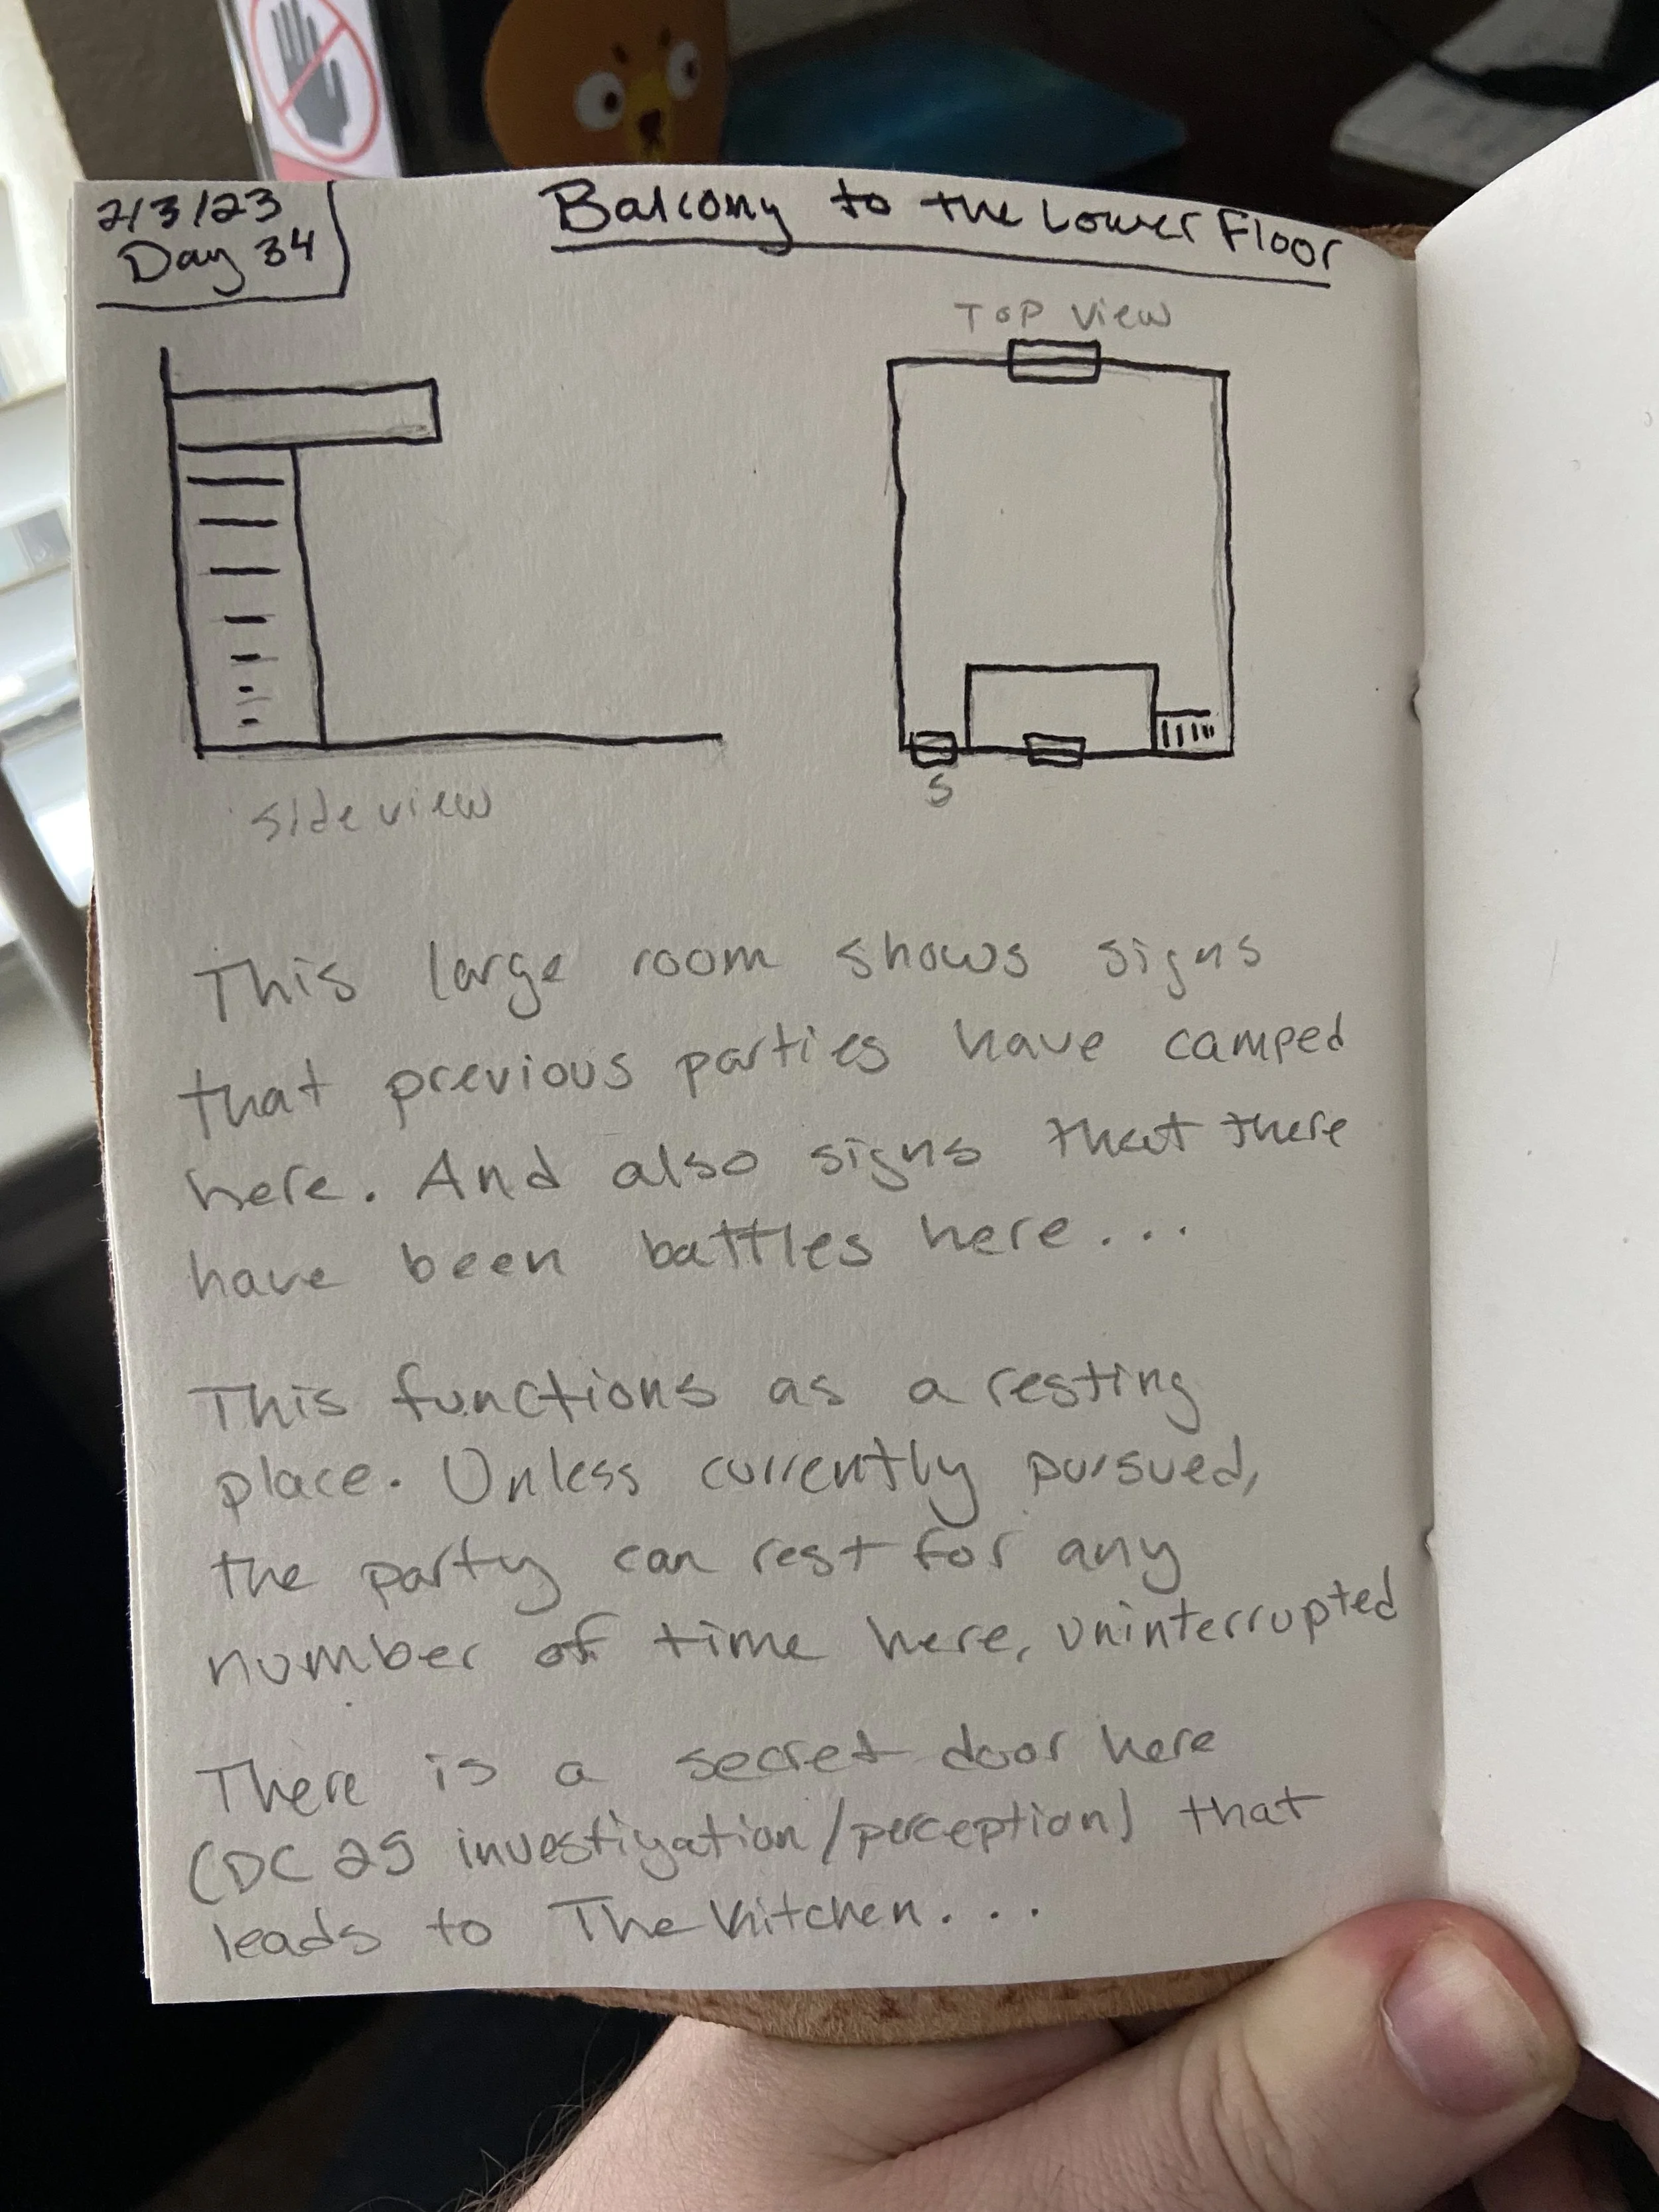 2/3/23
Day 34
Balcony to the Lower Floor
Top View
S
side view
This large room shows signs
that previous parties have camped
here. And also signs that there
have been battles here...
This functions as a resting
place. Unless currently pursued,
the party can rest for any
number of time here, uninterrupted
There is a secret door here
(DC 25 investigation/perception) that
leads to The Kitchen...